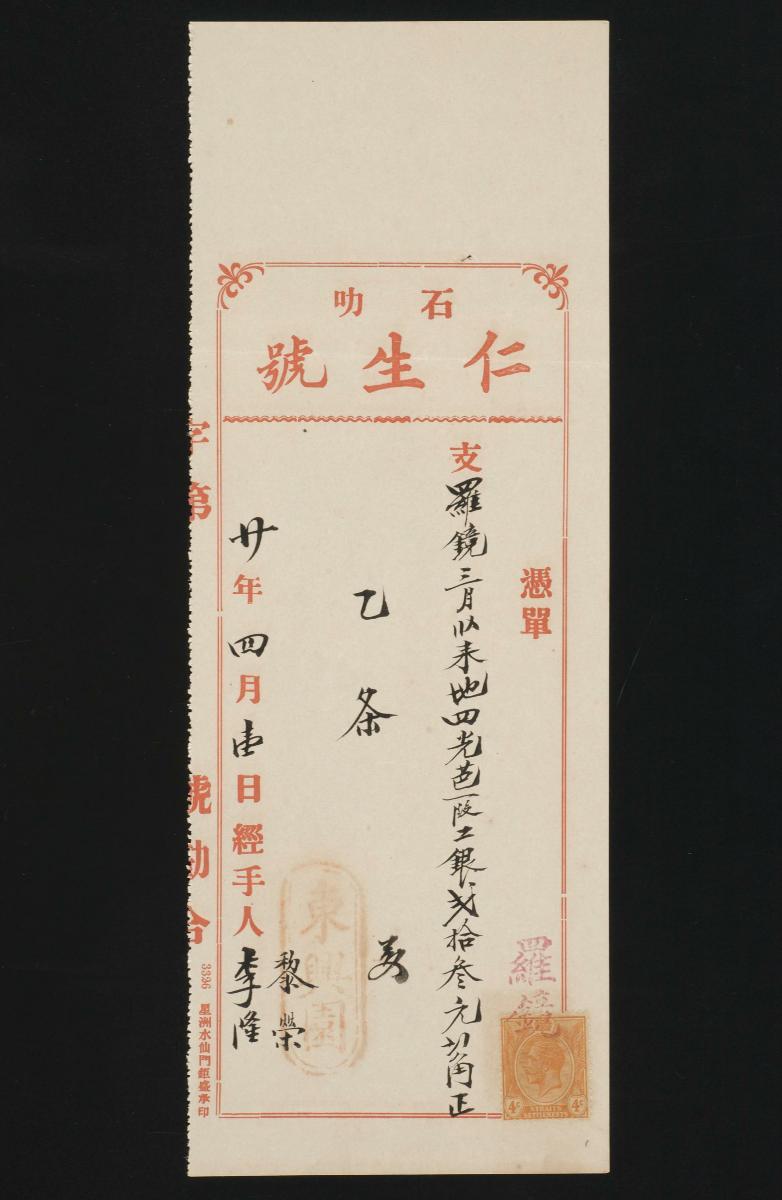 石叻
仁生號
憑單
羅鏡
支羅鏡三月以来地四光芭一段工銀弍拾叁元 角正
乙条
廿年四月壹日經手人
黎榮
李隆
東興園
字第 號勘合
3326 星洲水仙門鉅盛承印
4c STRAITS SETTLEMENTS 4c